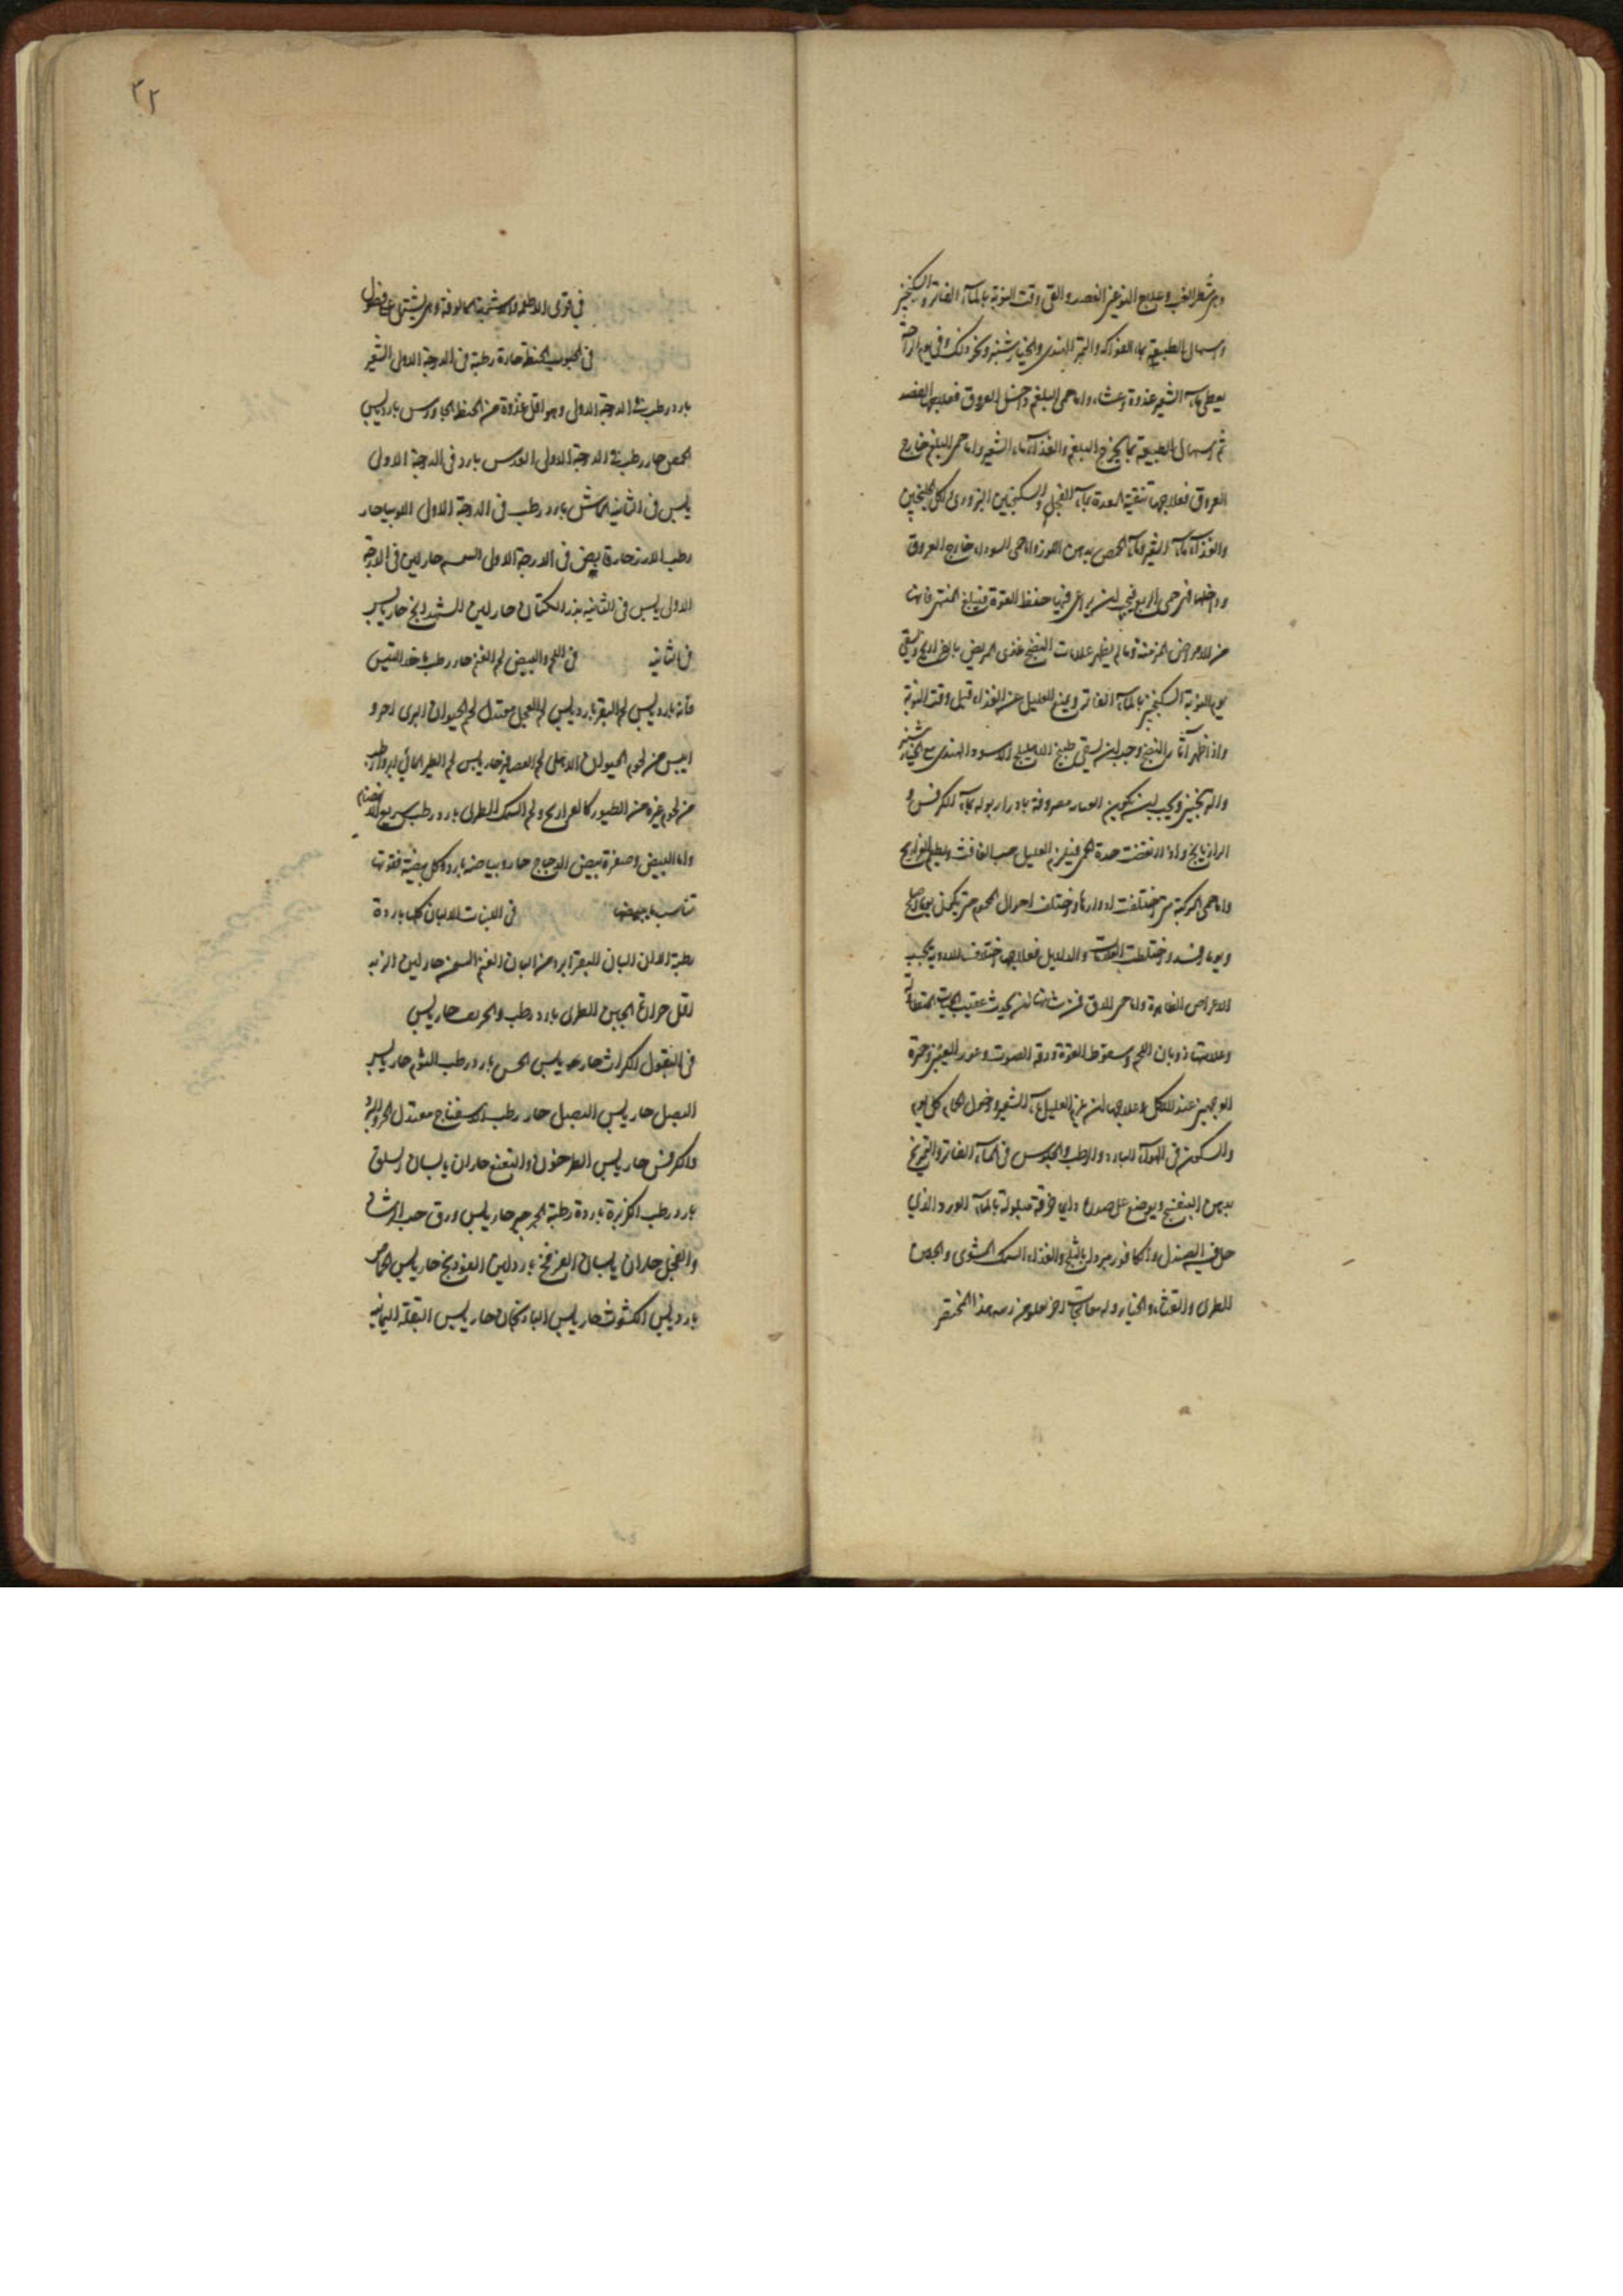 وهي شطر الغب وعلاج النوعين الفصد والقي وقت النوبة بالماء الفاتر والسكنجبين
واسهال الطبيعة بماء الفواكه والتمر الهندي والخيار شنبر ونحو ذلك وفي يوم الراحة
يعطى ماء الشعير غدوة وعشاء واما حمى البلغم داخل العروق فعلاجها الفصد
ثم اسهال الطبيعة بما يخرج البلغم والغذاء ماء الشعير واما حمى البلغم خارج
العروق فعلاجها تنقية المعدة بماء الفجل والسكنجبين البزوري
والغذاء ماء الشعير وماء الحمص بدهن اللوز واما حمى السوداء خارج العروق
وداخلها فهي حمى الربع فيجب ان يراعى فيها حفظ القوة فانها
من الامراض المزمنة وما لم يظهر علامات النضج غذى المريض بالفراريج ويسقى
يوم النوبة السكنجبين بالماء الفاتر ويمنع العليل عن الغذاء قبل وقت النوبة
واذا ظهر آثار النضج وجب ان يسقى طبيخ الاهليلج الاسود الهندي مع الخيار شنبر
والترنجبين ويجب ان يكون العناية مصروفة بادرار بوله بماء الكرفس و
الرازيانج واذا انقضت حدة الحمى فيلزم العليل حب الغافت ويطعم الفراريج
واما حمى المركبة متى اختلفت ادوارها واختلفت احوال المحموم حتى يكون يوما اصلح
ويوما افسد واختلطت العلامات والدلايل فعلاجها اختلاف الادوية بحسب
الاعراض الظاهرة واما حمى الدق فمن شانها ان يحدث عقيب الحميات المتطاولة
وعلاماتها ذوبان اللحم وسقوط القوة ورقة الصوت وغور العينين وحمرة
الوجهين عند الاكل وعلاجها ان يلزم العليل ماء الشعير ودخول الحمام كل يوم
والسكون في الهواء البارد والرطب والجلوس في الماء الفاتر والتمريخ
بدهن البنفسج ويوضع على صدره دايما خرقة مبلولة بالماء الورد الذي
حل فيه الصندل والكافور مبرد بالثلج والغذاء السمك المشوي والجبن
الطري والقثاء والخيار
٢٢
في قوى الاطعمة والاشربة المالوفة وهي يشتمل على فصول
في الحبوب الحنطة حارة رطبة في الدرجة الاولى الشعير
بارد رطب في الدرجة الاولى وهو اقل غذوة من الحنطة الجاورس بارد يابس
الحمص حار رطب في الدرجة الاولى العدس بارد في الدرجة الاولى
يابس في الثانية الماش بارد رطب في الدرجة الاولى اللوبيا حار
رطب الارز حار قابض في الدرجة الاولى السمسم حار لين في الدرجة
الاولى يابس في الثانية بذر الكتان حار لين الشهدانج حار يابس
في الثانية في اللحم والبيض لحم الغنم حار رطب ما خلا التيس
فانه بارد يابس لحم البقر بارد يابس لحم العجل معتدل لحم الحيوان البري احر و
ايبس من لحوم الحيوان الاهلي لحم العصافير حار يابس لحم الطير المائي ابرد وارطب
من لحوم غيره من الطيور كالفراريج ولحم السمك الطري بارد رطب سريع الانهضام
واما البيض وصفرة بيض الدجاج حار وبياضه بارد وكل بيضة فقوتها
تناسب في اللبنات الالبان كلها باردة
رطبة البان البقر ابرد من البان الغنم السمن حار لين الزبد
اقل حرارة الجبن الطري بارد رطب والحريف حار يابس
في البقول الكراث حار يابس الخس بارد رطب الثوم حار يابس
البصل حار يابس البصل حار رطب الاسفناج معتدل الحر والبرد
والكرفس حار يابس الطرخون والنعنع حاران يابسان السلق
بارد رطب الكزبرة باردة رطبة الجرجير حار يابس ورق حب الرشاد
والفجل حاران يابسان الفرفخ بارد لين الفودنج حار يابس الحماض
بارد يابس الكشوث حار يابس الباذنجان حار يابس البقلة اليمانية